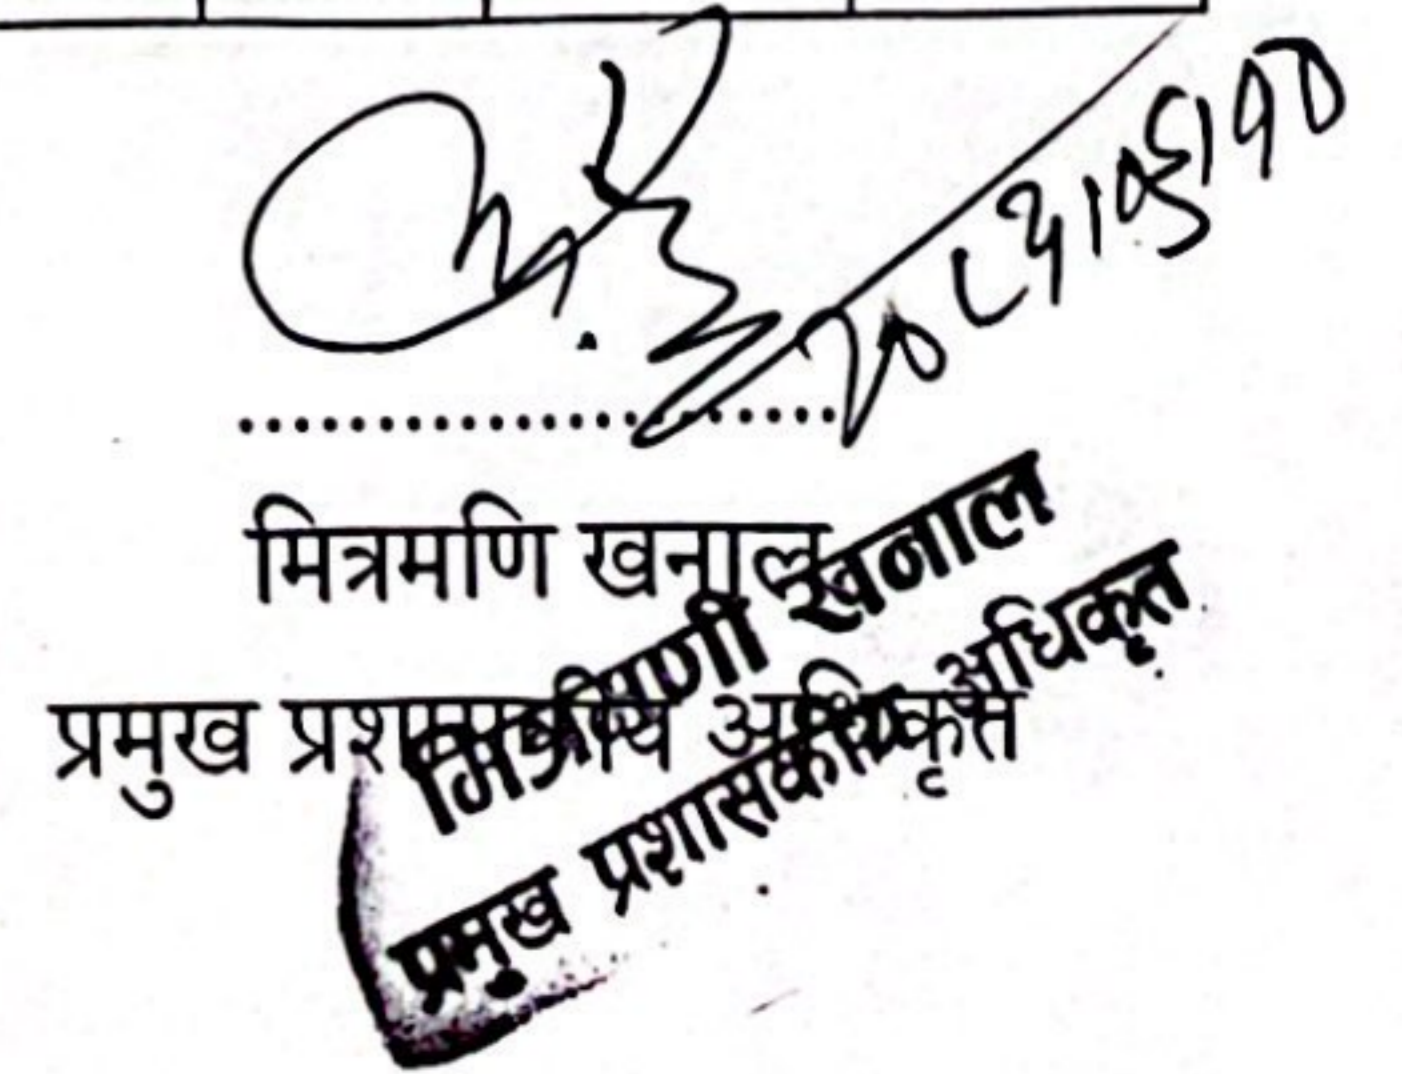 मित्रमणि खनाल
प्रमुख प्रशासकीय अधिकृत
मित्रमणी खनाल
प्रमुख प्रशासकीय अधिकृत